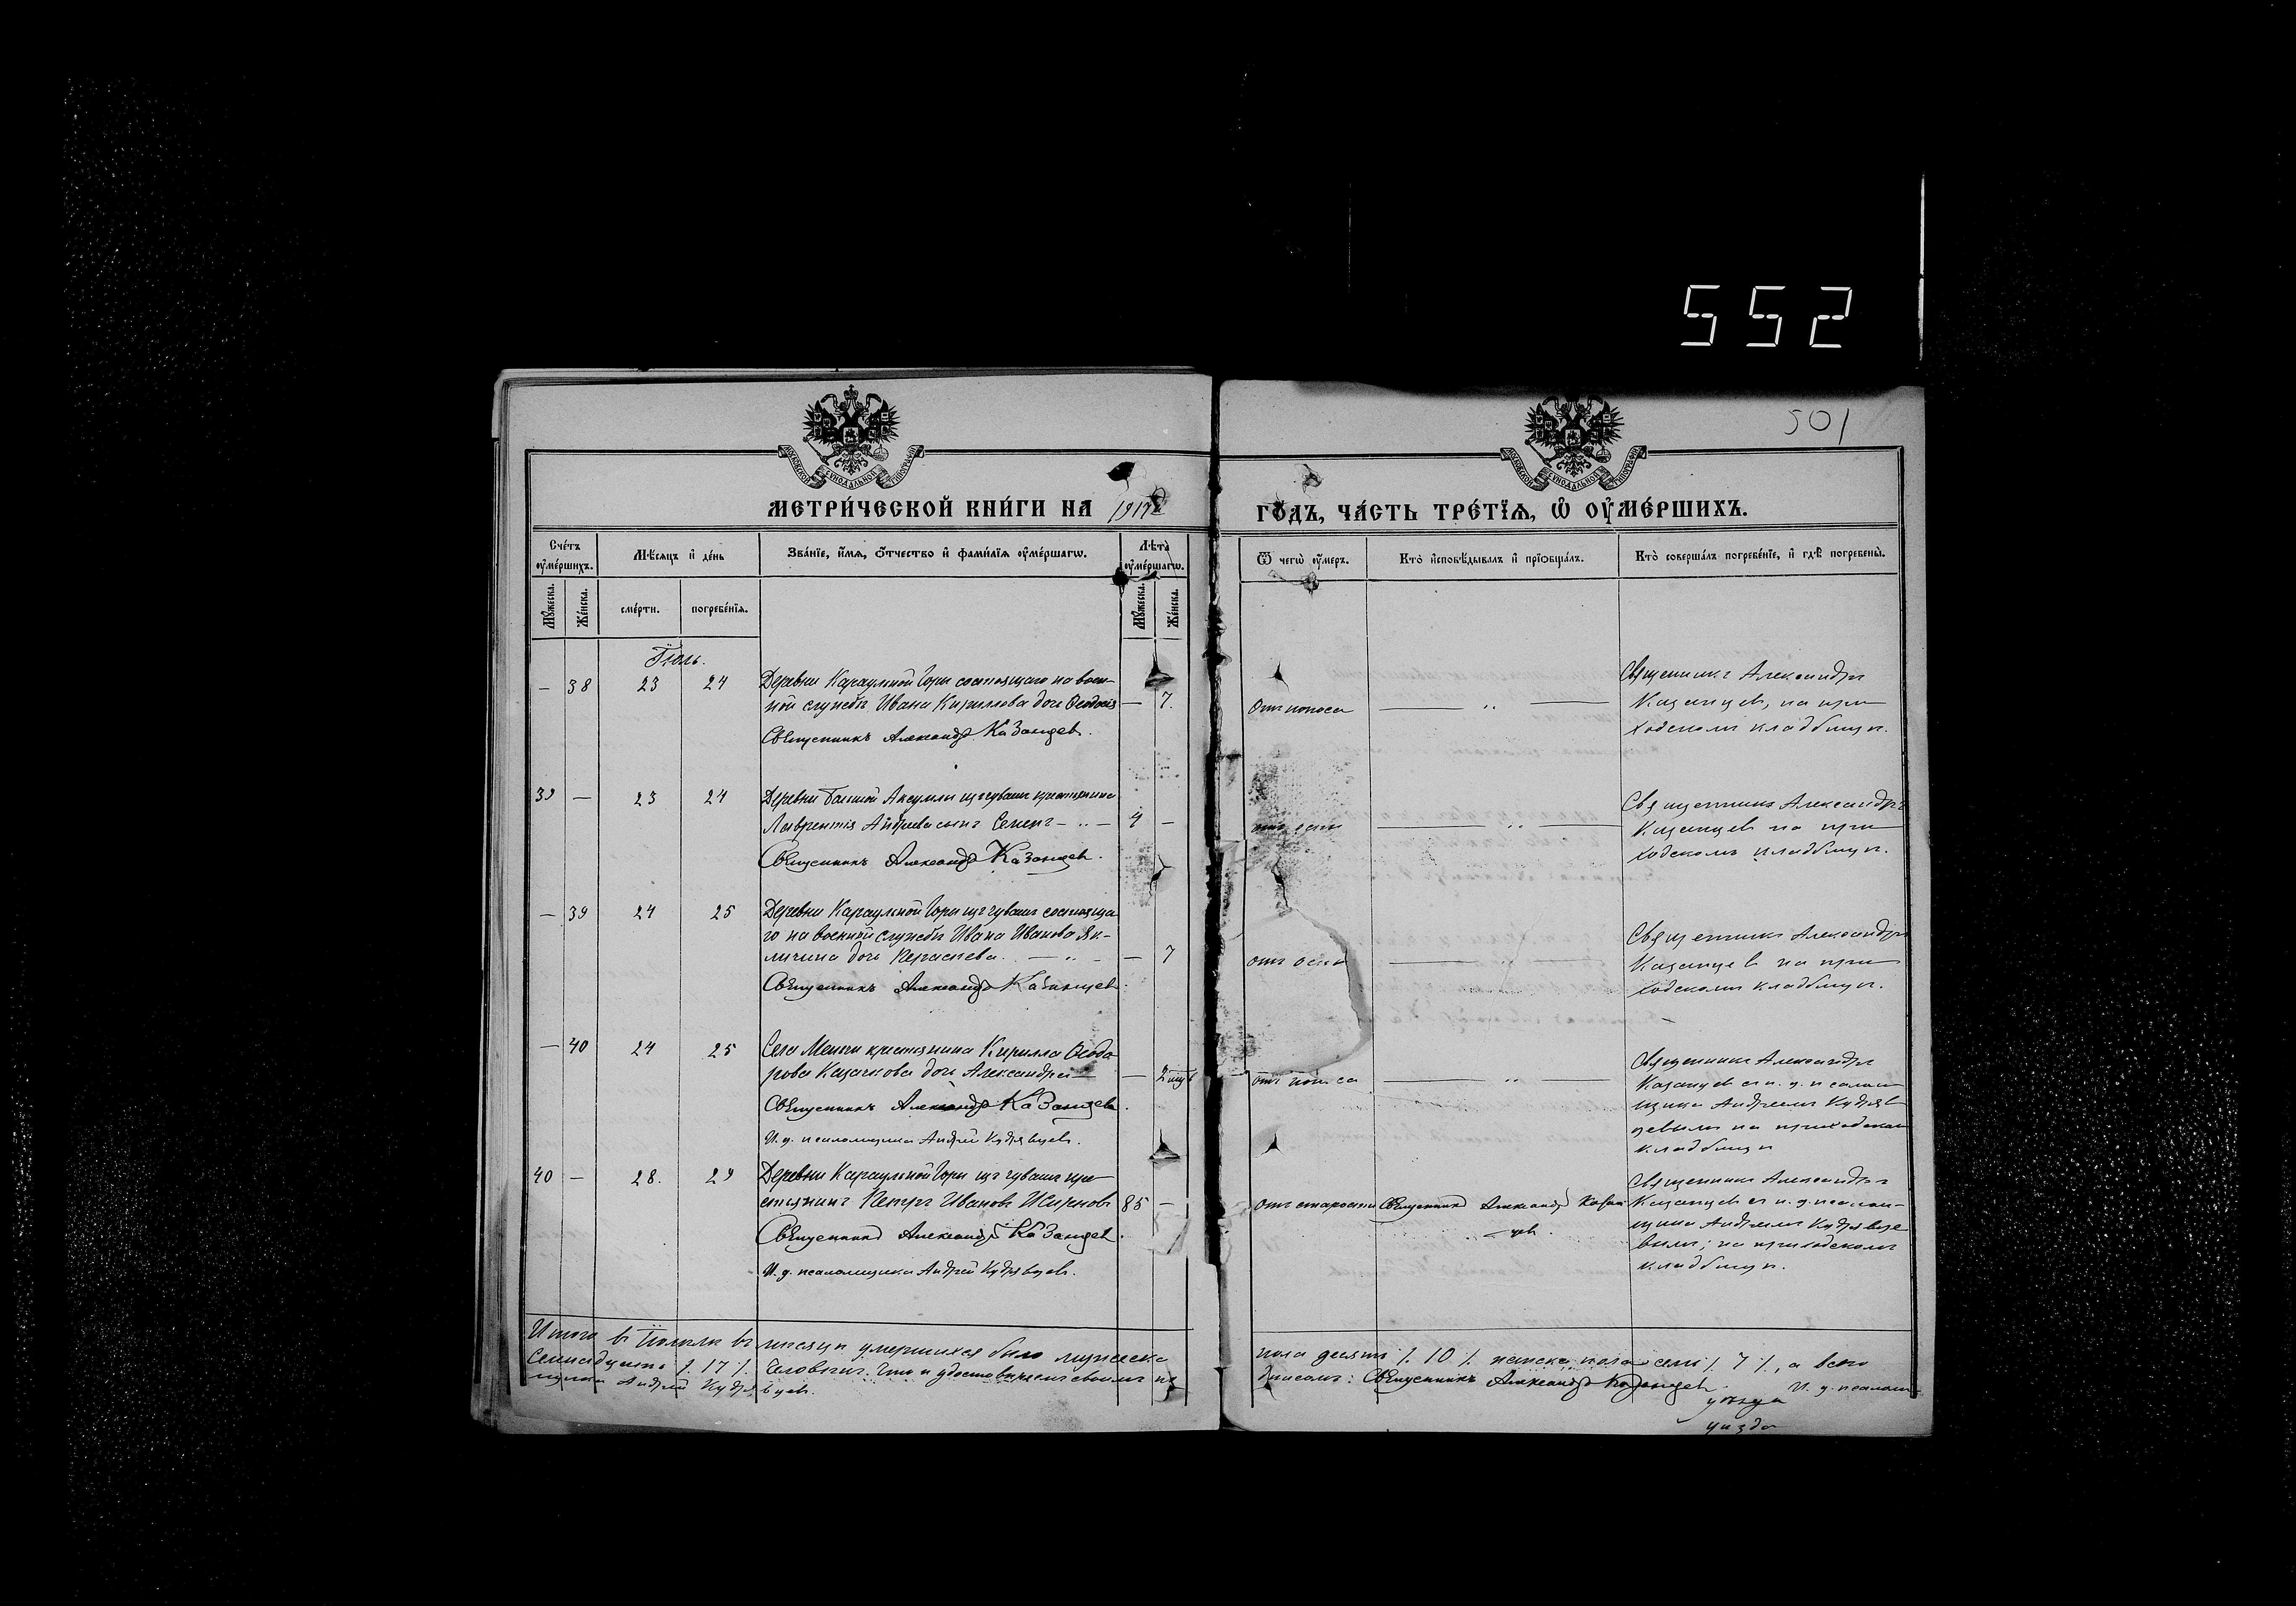 552
501
МОСКОВСКОЙ СѴНОДАЛЬНОЙ ТИПОГРАФІИ
МОСКОВСКОЙ СѴНОДАЛЬНОЙ ТИПОГРАФІИ
МЕТРИ́ЧЕСКОЙ КНИ́ГИ НА 1917
ГО́ДЪ, ЧА́СТЬ ТРЕ́ТЇѦ, Ѡ҆ ОУ҆МЕ́РШИХЪ.
Сче́тъ оу҆ме́ршихъ.
Мѣ́сяцъ и҆ де́нь
Зва́нїе, и҆́мя, ѻ҆́тчество и҆ фами́лїя оу҆ме́ршагѡ.
Лѣ́та оу҆ме́ршагѡ.
Ѿ чегѡ̀ оу҆́меръ.
Кто̀ и҆сповѣ́дывалъ и҆ прїѻбща́лъ.
Кто̀ соверша́лъ погребе́нїе, и҆ гдѣ̀ погребены̀.
Мꙋ́жеска.
Же́нска.
сме́рти.
погребе́нїя.
Мꙋ́жеска.
Же́нска.
Іюль.
— 38 23 24
Деревни Караульной Горы состоящаго на воен-
ной службѣ Ивана Кириллова дочь Ѳеодосія — 7.
Священникъ Александръ Казанцевъ.
Отъ поноса — „ —
Священникъ Александръ
Казанцевъ, на при-
ходскомъ кладбищѣ.
39 — 23 24
Деревни Большой Аксумлы изъ чувашъ крестьянина
Лаврентія Андреева сынъ Семенъ — „ — 4 —
Священникъ Александръ Казанцевъ.
отъ оспы — „ —
Священникъ Александръ
Казанцевъ на при-
ходскомъ кладбищѣ.
— 39 24 25
Деревни Караульной Горы изъ чувашъ состояща-
го на военной службѣ Ивана Иванова Як-
личина дочь Параскева — „ — — 7
Священникъ Александръ Казанцевъ.
отъ оспы — „ —
Священникъ Александръ
Казанцевъ на при-
ходскомъ кладбищѣ.
— 40 24 25
Села крестьянина Кирилла Ѳеодо-
рова Казачкова дочь Александра — — 2
Священникъ Александръ Казанцевъ.
И. д. псаломщика Андрей Кудрявцевъ.
отъ поноса — „ —
Священникъ Александръ
Казанцевъ съ и. д. псалом-
щика Андреемъ Кудряв-
цевымъ на приходскомъ
кладбищѣ
40 — 28. 29
Деревни Караульной Горы изъ чувашъ кре-
стьянинъ Петръ Ивановъ 85 —
Священникъ Александръ Казанцевъ.
И. д. псаломщика Андрей Кудрявцевъ.
отъ старости
Священникъ Александръ Казан-
цевъ.
Священникъ Александръ
Казанцевъ съ и. д. псалом-
щика Андреемъ Кудрявце-
вымъ; на приходскомъ
кладбищѣ.
Итого въ Іюлѣ мѣсяцѣ умершихъ было мужеска
пола десять /. 10 /. женска пола семь /. 7 /., а всего
Семнадцать /. 17 /. человѣкъ. Что и удостовѣряемъ своимъ по
дписомъ: Священникъ Александръ Казанцевъ. И. д. псалом-
щика Андрей Кудрявцевъ.
уѣзда